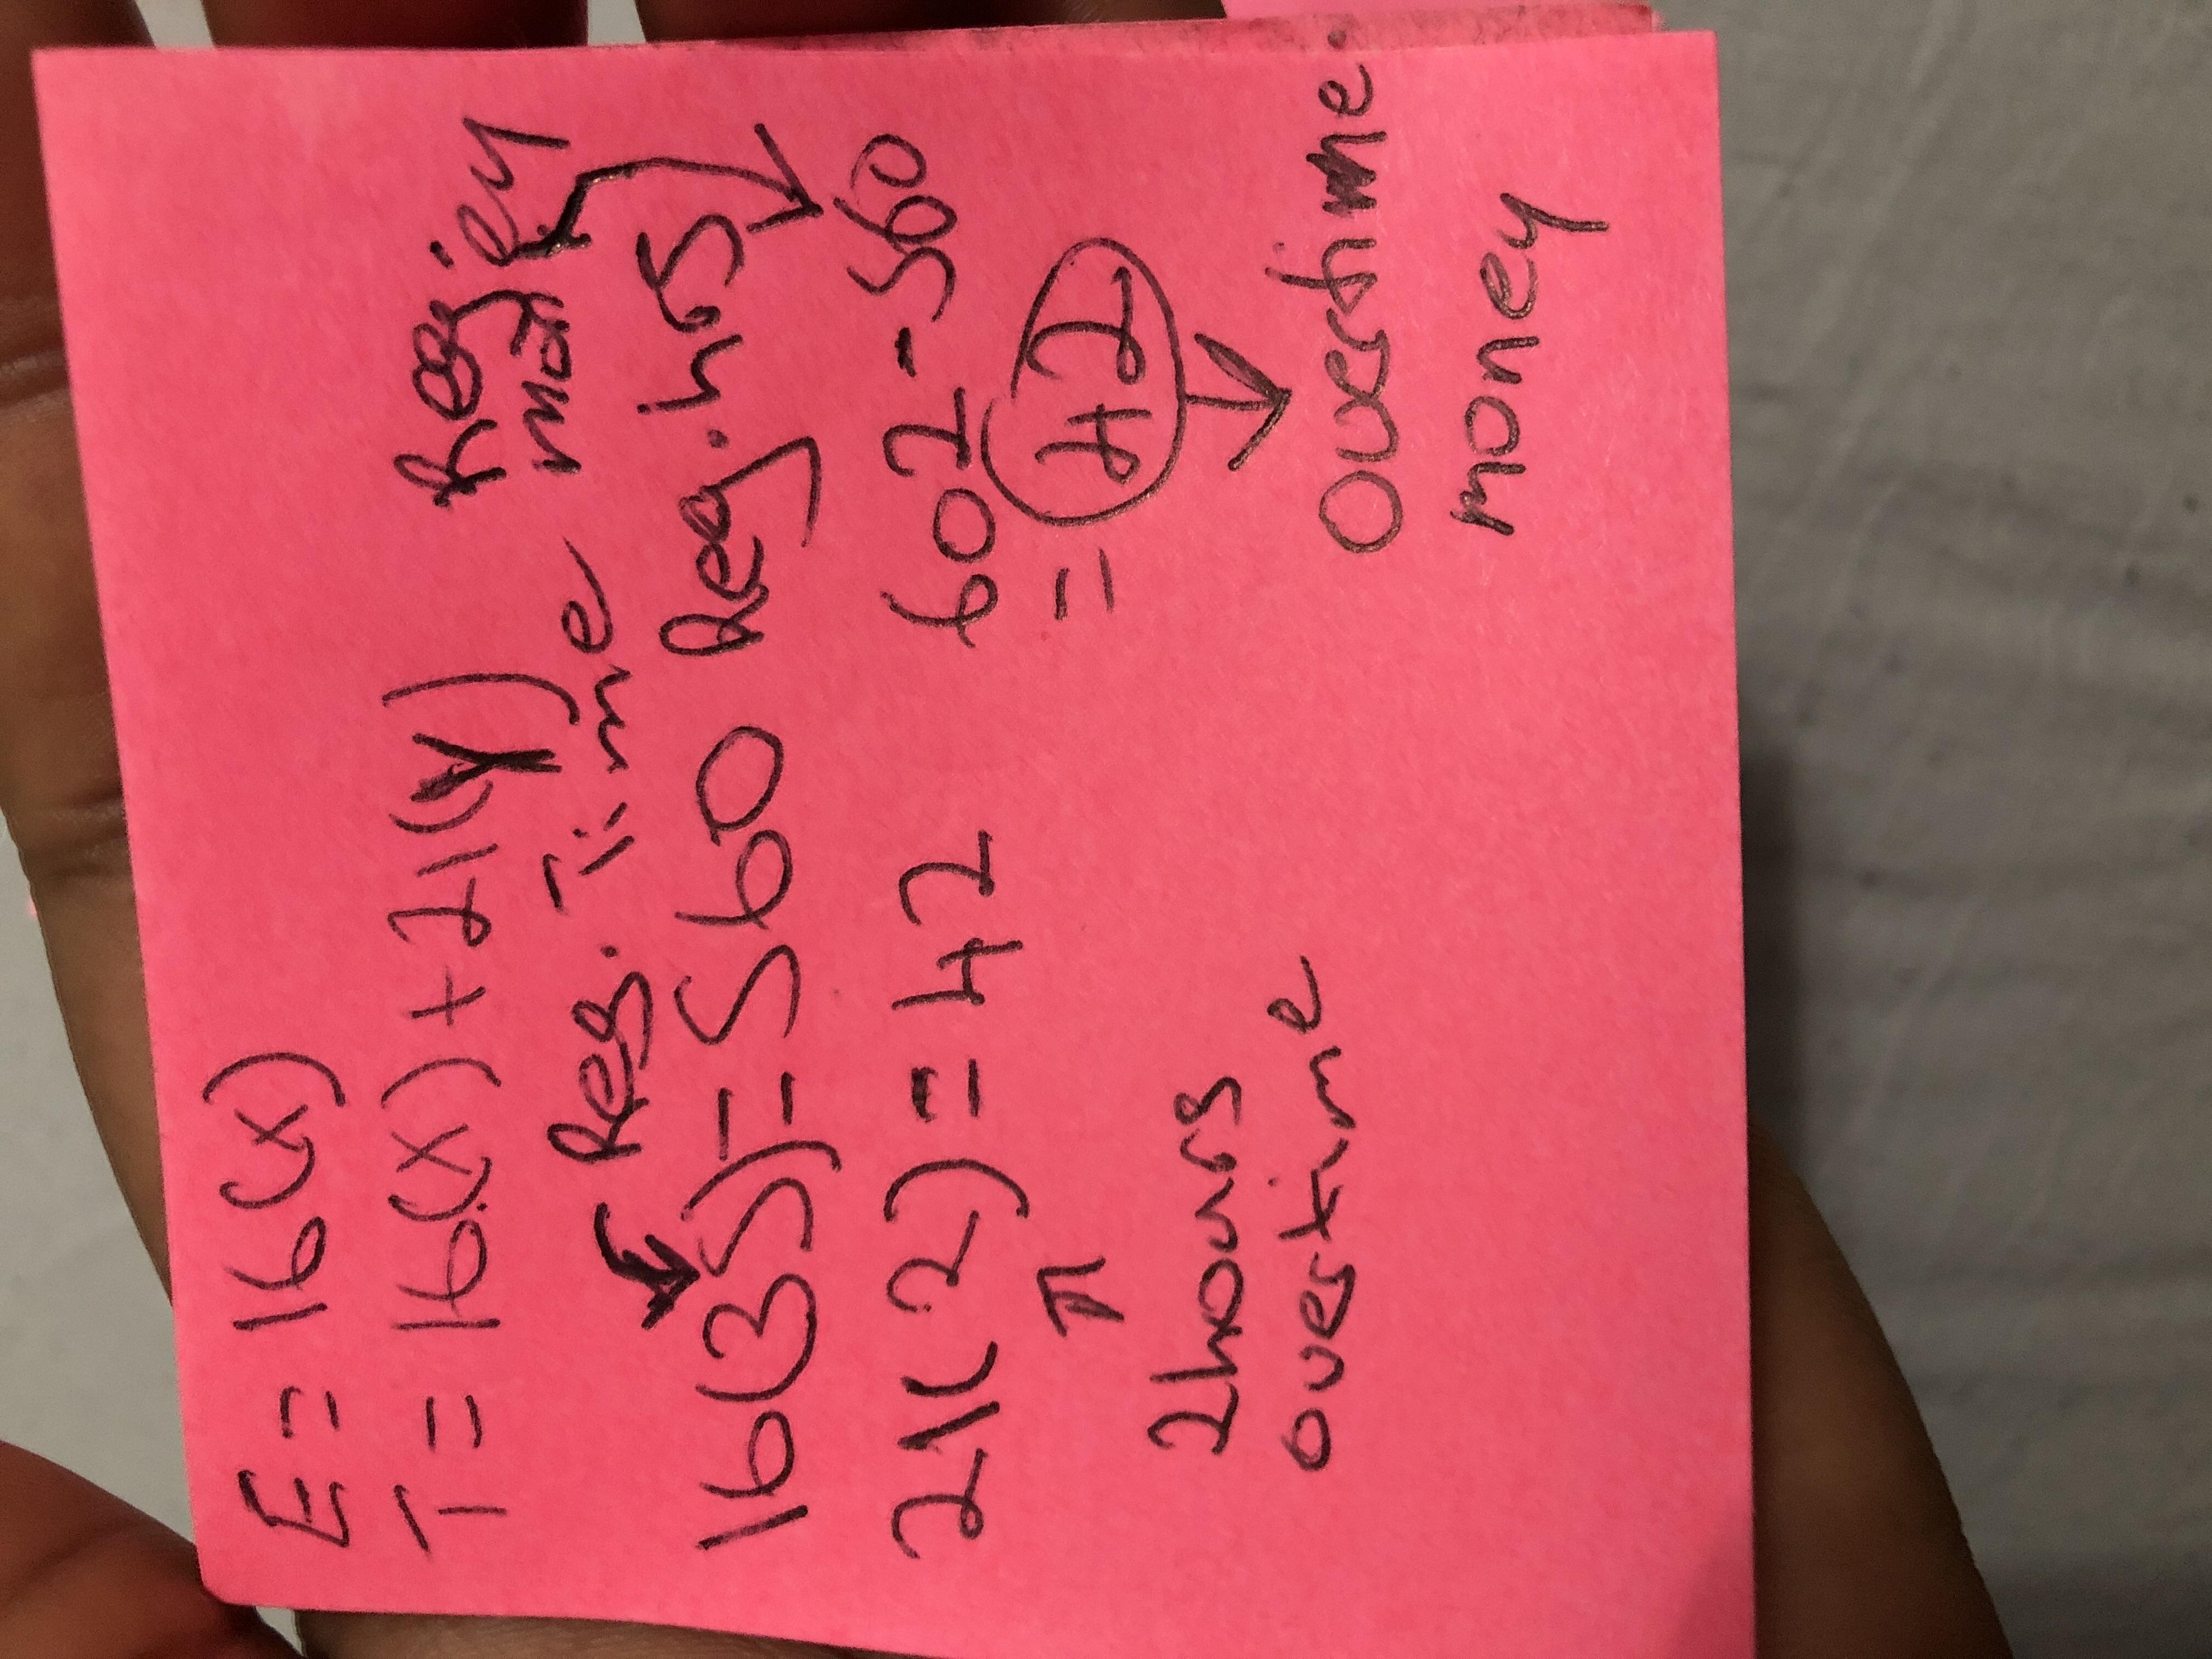 E = 16(x)
T = 16(x) + 21(y)
Reg. Time
16(35) = 560
21(2) = 42
2 hours
overtime
Reg. hrs
602 - 560
= 42
overtime.
money